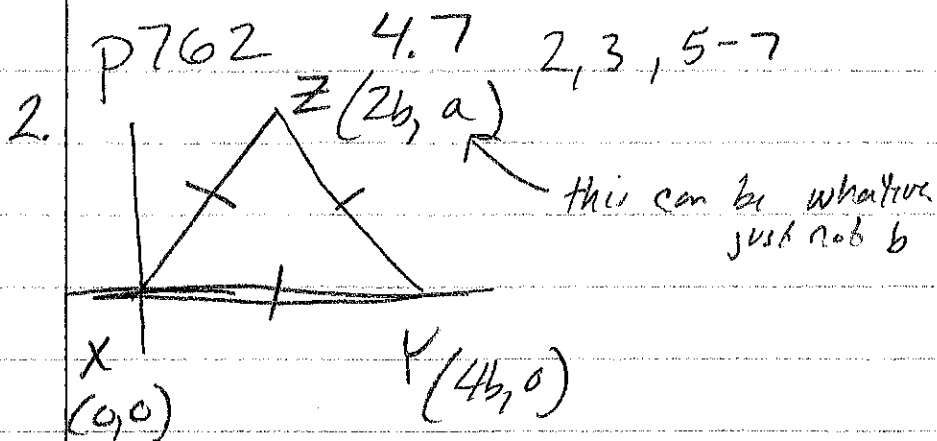 p762 4.7 2, 3, 5-7
2. Z (2b, a)
this can be whatever
just not b
X Y (4b, 0)
(0,0)